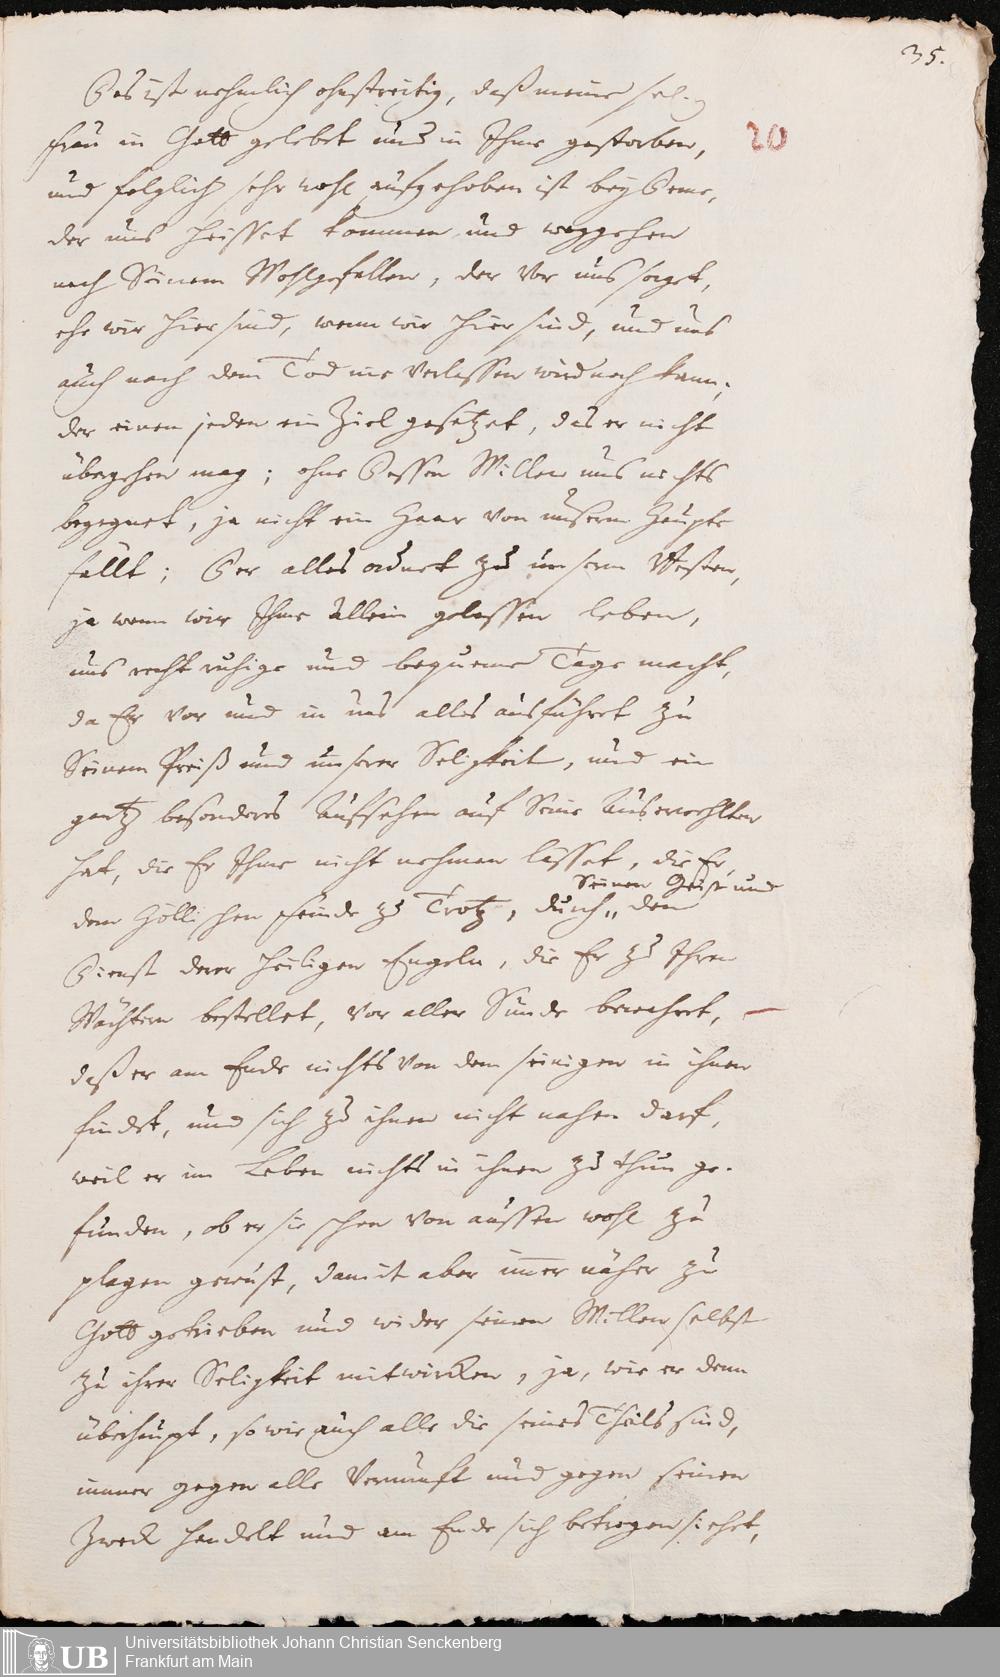 35.
Es ist nehmlich ohnstreitig, daß meine sel.
Frau in Gott gelebet und in Ihme gestorben,
20
und folglich sehr wohl aufgehoben ist bey Deme,
der uns heisset kommen und weggehen
nach Seinem Wohlgefallen, der vor uns sorget,
ehe wir hier sind, wenn wir hier sind, und uns
auch nach dem Tod nie verlassen wird noch kann,
der einem jeden ein Ziel gesetzet, das er nicht
übergehen mag; ohne Dessen Willen uns nichts
begegnet, ja nicht ein Haar von unserm Haupte
fällt; Der alles ordnet zu unserm Besten,
ja wenn wir Ihme allein gelassen leben,
uns recht ruhige und bequeme Tage macht,
da Er vor und in uns alles ausführet zu
Seinem Preiß und unserer Seligkeit, und ein
gantz besonderes Aufsehen auf Seine Auserwehlten
hat, die Er Ihme nicht nehmen lässet, die Er,
Seinen Geist und
dem Höllischen Feinde zu Trotz, durch,, den
Dienst derer heiligen Engeln, die Er zu Ihren
Wächtern bestellet, vor aller Sünde bewahret,
daß er am Ende nichts von dem seinigen in ihnen
findet, und sich zu ihnen nicht nahen darf,
weil er im Leben nichts in ihnen zu thun ge-
funden, ob er sie schon von aussen wohl zu
plagen gewust, damit aber im̅er näher zu
Gott getrieben und wider seinen Willen selbst
zu ihrer Seligkeit mitwircken, ja, wie er denn
überhaupt, so wie auch alle die seines Theils sind,
immer gegen alle Vernunft und gegen seinen
Zweck handelt und am Ende sich betrogen siehet,
UB
Universitätsbibliothek Johann Christian Senckenberg
Frankfurt am Main